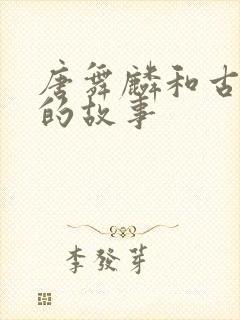 唐舞麟和古
的故事
李发芽